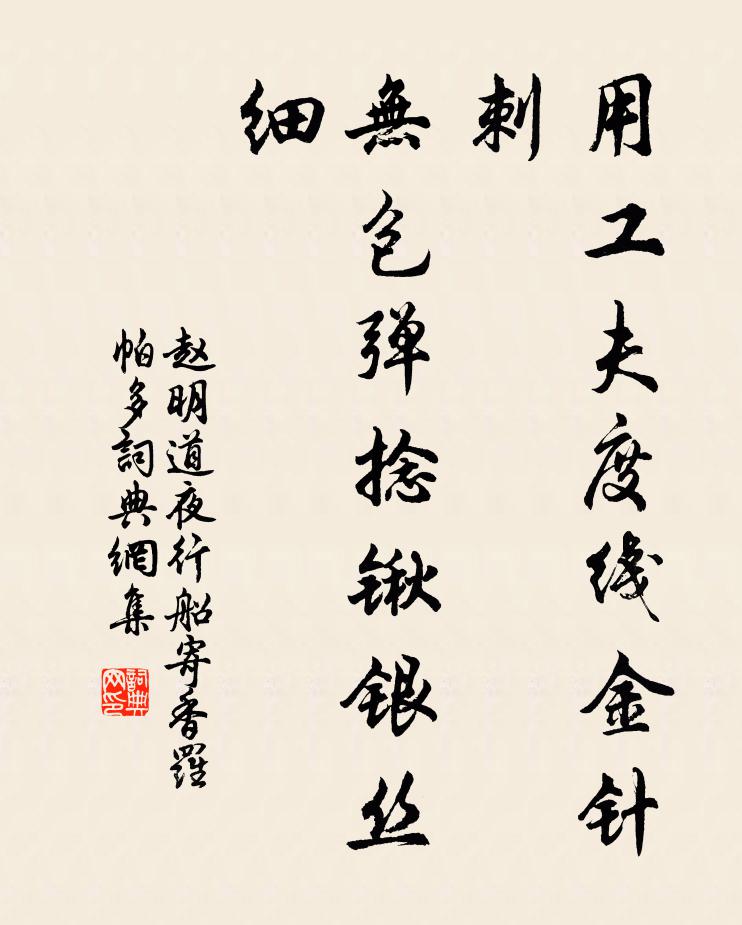 用工夫度线金针
刺
無包弹捻锹银丝
细
赵明道夜行船寄香羅
帕多詞典網集
詞典
网印